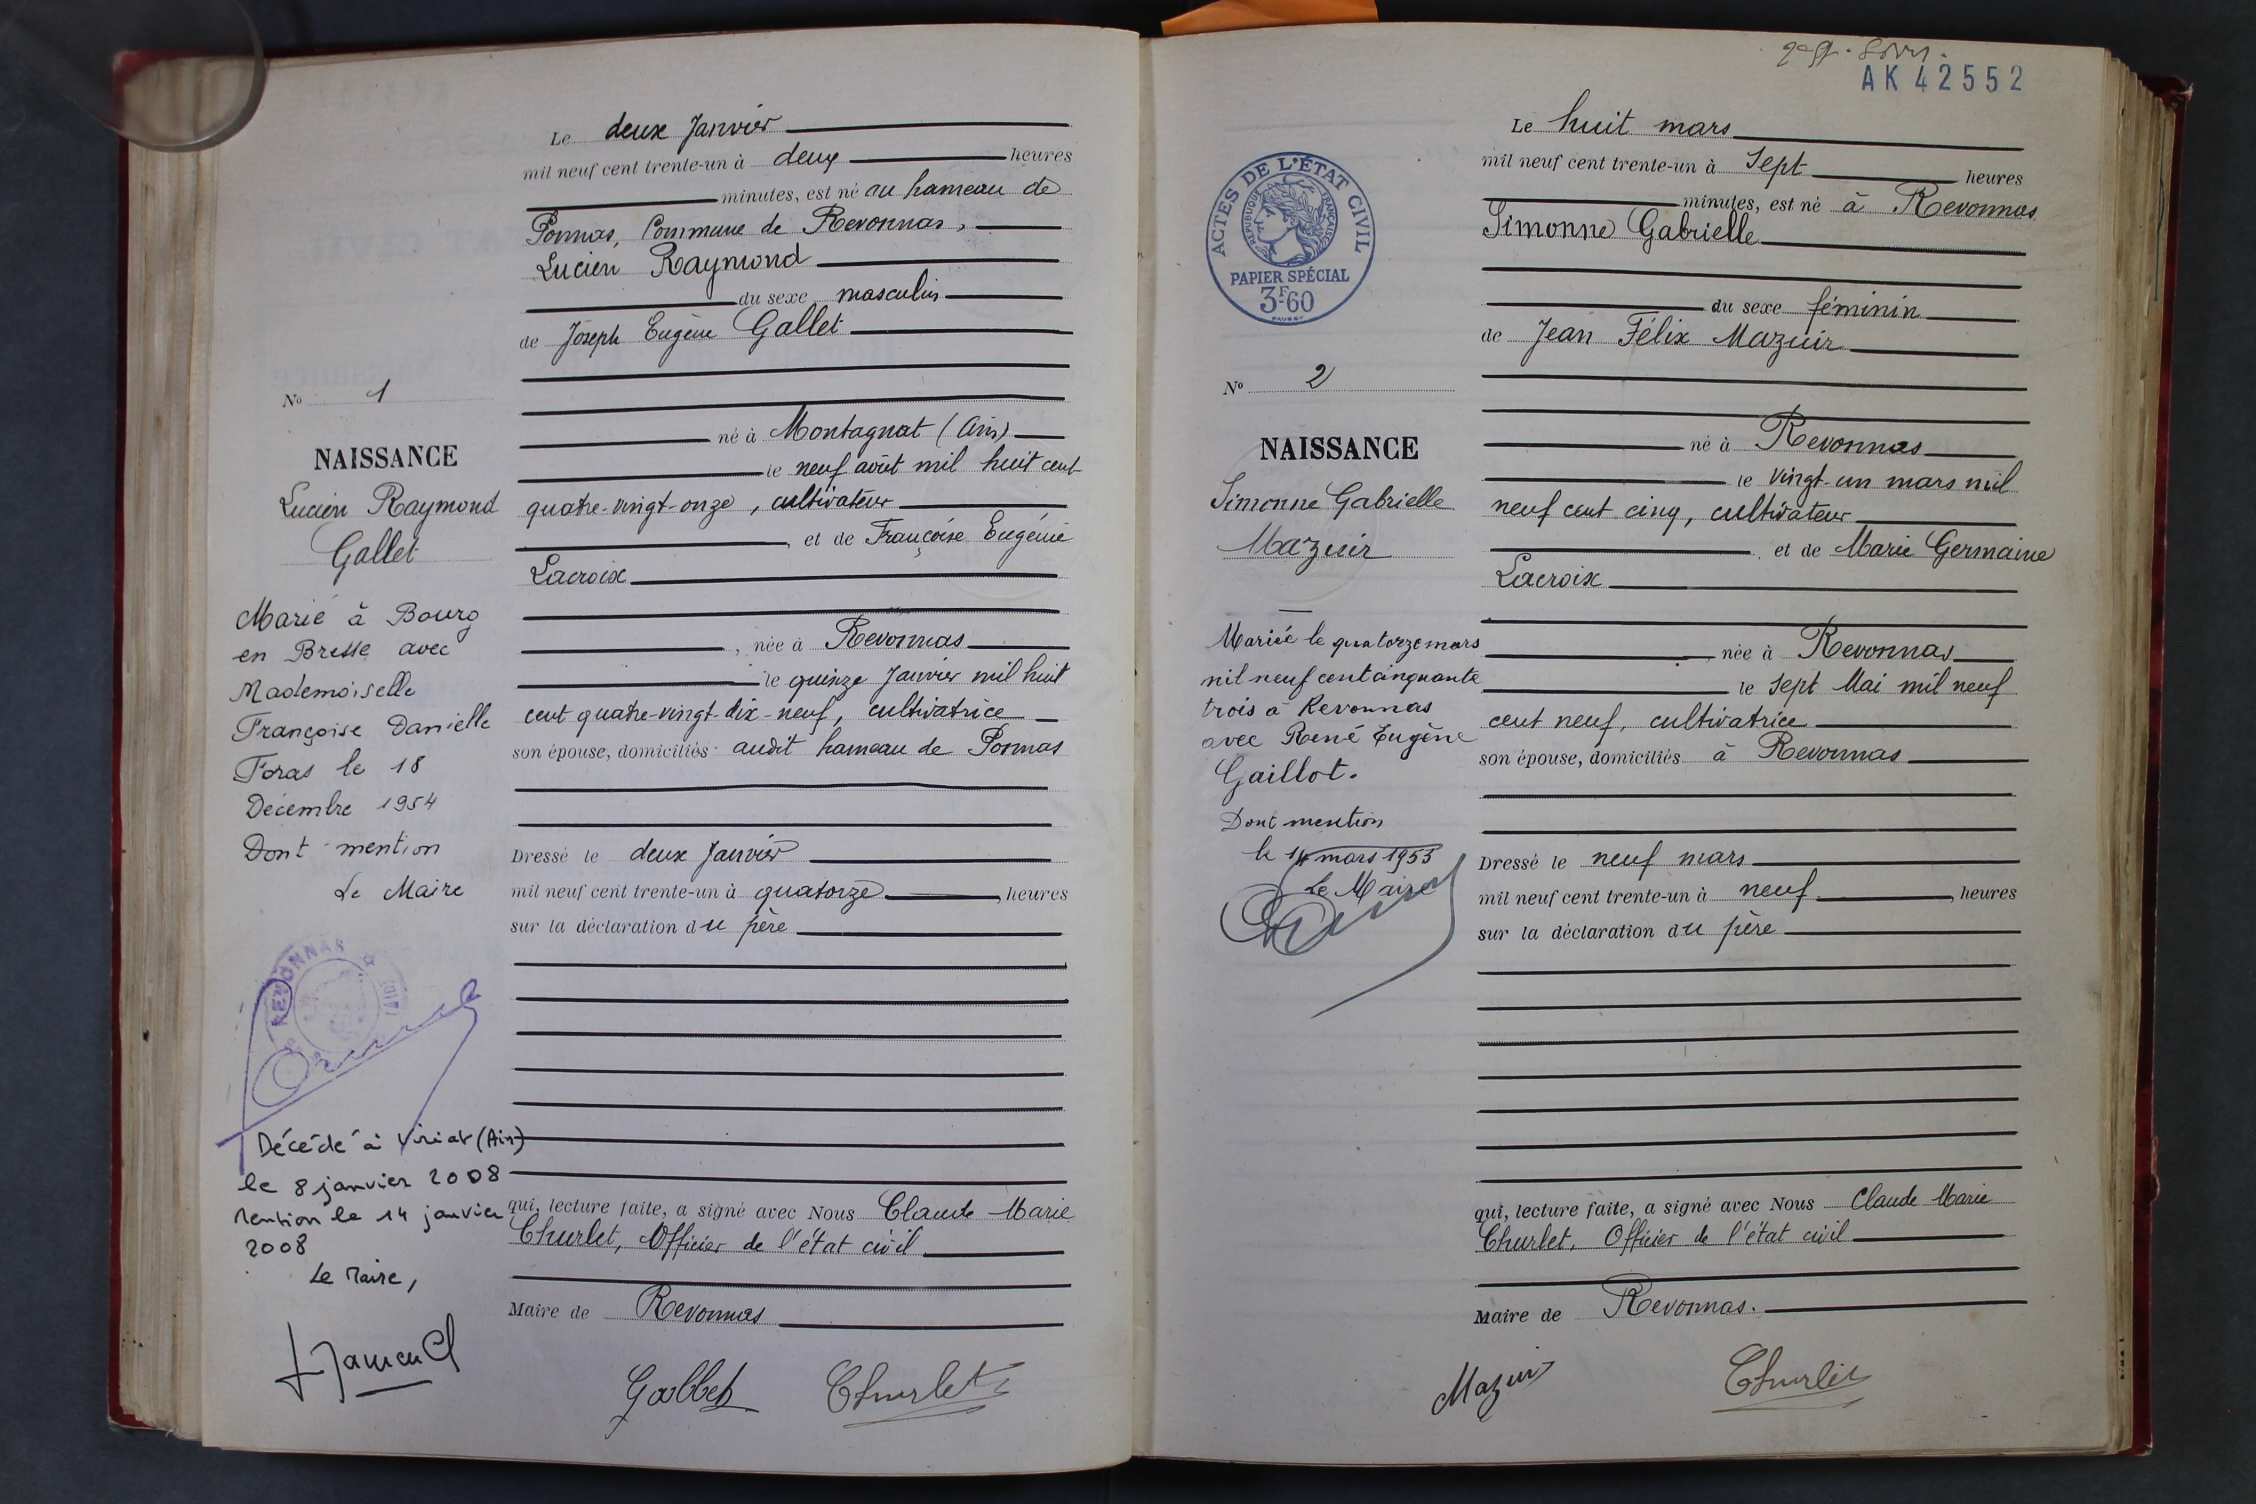 Le deux Janvier
mil neuf cent trente-un à deux heures
minutes, est né au hameau de
Pommas, Commune de Revonnas,
Lucien Raymond
du sexe masculin
de Joseph Eugène Gallet
né à Montagnat (Ain)
le neuf août mil huit cent
quatre-vingt-onze, cultivateur
, et de Françoise Eugénie
Lacroix
, née à Revonnas
le quinze Janvier mil huit
cent quatre-vingt-dix-neuf, cultivatrice
son épouse, domiciliés audit hameau de Pommas
Dressé le deux Janvier
mil neuf cent trente-un à quatorze, heures
sur la déclaration du père
qui, lecture faite, a signé avec Nous Claude Marie
Churlet, Officier de l'état civil
Maire de Revonnas
Gallet Churlet
No 1
NAISSANCE
Lucien Raymond
Gallet
Marié à Bourg
en Bresse avec
Mademoiselle
Françoise Danielle
Foras le 18
Décembre 1954
Dont mention
Le Maire
REVONNAS
Décédé à Viriat (Ain)
le 8 janvier 2008
Mention le 14 janvier
2008
Le Maire,
AK 42552
ACTES DE L'ÉTAT CIVIL
RÉPUBLIQUE FRANÇAISE
PAPIER SPÉCIAL
3F60
No 2
NAISSANCE
Simonne Gabrielle
Mazuir
Mariée le quatorze mars
mil neuf cent cinquante
trois à Revonnas
avec René Eugène
Gaillot.
Dont mention
le 14 mars 1953
Le Maire
Le huit mars
mil neuf cent trente-un à sept heures
minutes, est né à Revonnas
Simonne Gabrielle
du sexe féminin
de Jean Félix Mazuir
né à Revonnas
le vingt-un mars mil
neuf cent cinq, cultivateur
et de Marie Germaine
Lacroix
, née à Revonnas
le sept Mai mil neuf
cent neuf, cultivatrice
son épouse, domiciliés à Revonnas
Dressé le neuf mars
mil neuf cent trente-un à neuf, heures
sur la déclaration du père
qui, lecture faite, a signé avec Nous Claude Marie
Churlet, Officier de l'état civil
Maire de Revonnas.
Mazuir Churlet